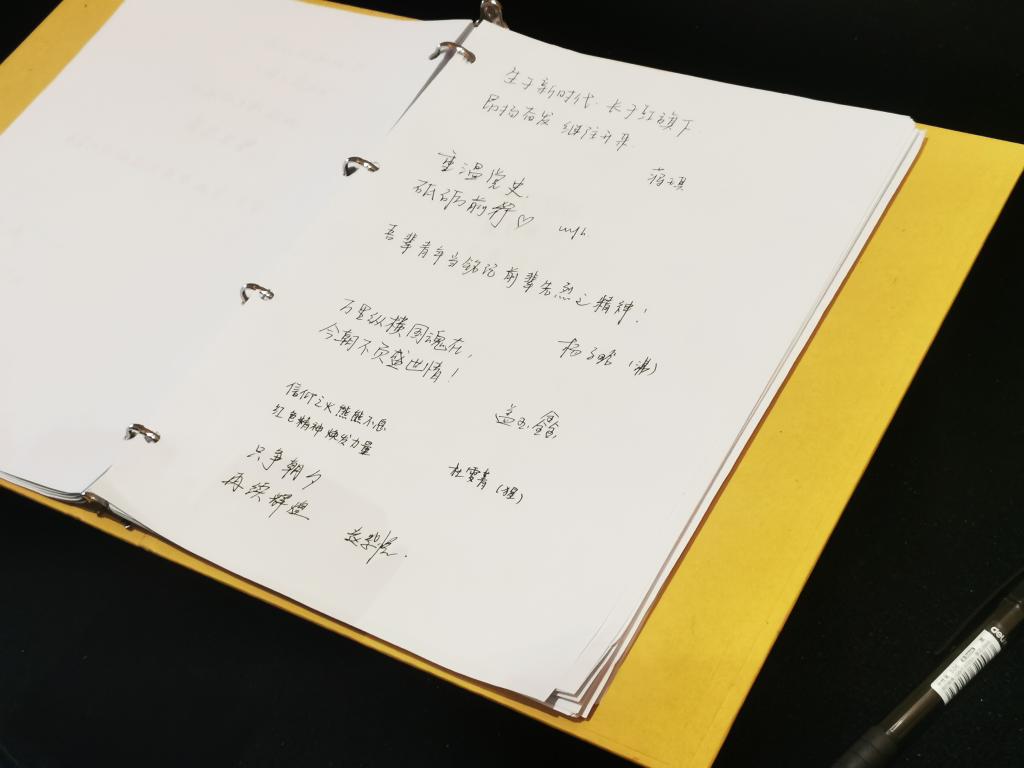 生于新时代. 长于红旗下
昂扬奋发 继往开来.
蒋
重温党史.
砥砺前行♡
wyh
吾辈青年当铭记前辈先烈之精神!
杨
万里纵横国魂在,
今朝不负盛世情!
盖玉鑫
信仰之火熊熊不息
红色精神焕发力量
杜雯青(猩)
只争朝夕
再续辉煌
deli